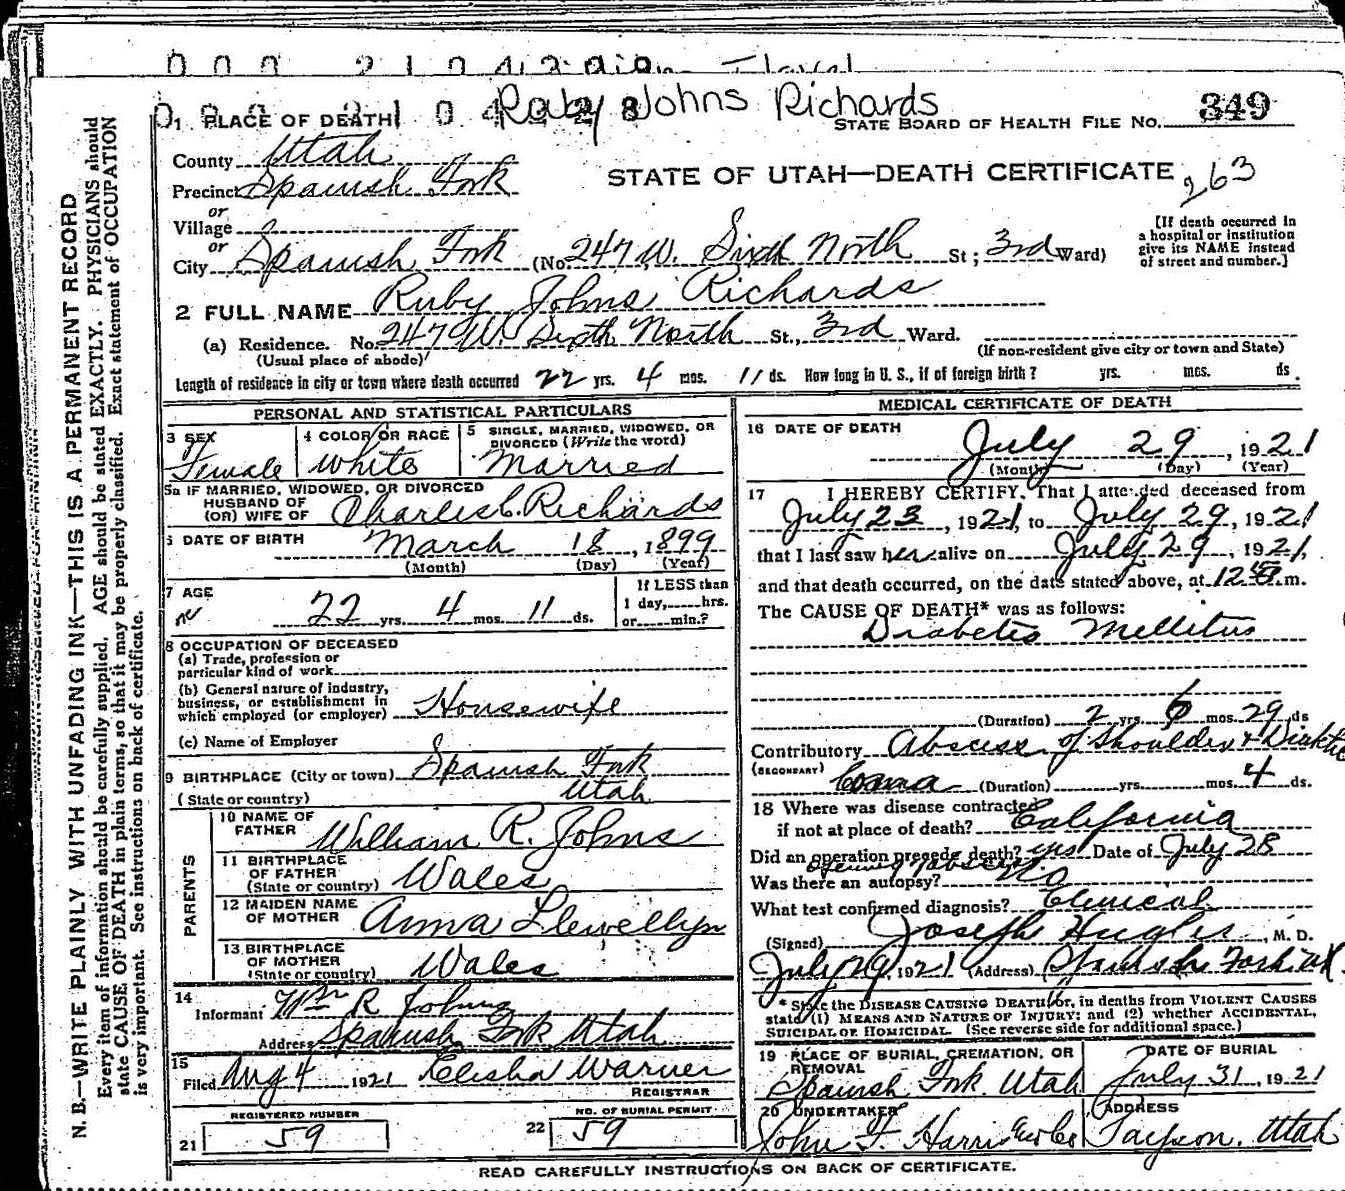 Ruby Johns Richards
1 PLACE OF DEATH
STATE BOARD OF HEALTH FILE No. 349
County Utah
Precinct Spanish Fork
STATE OF UTAH—DEATH CERTIFICATE 263
or
Village
or
City Spanish Fork (No. 247 W. Sixth North St; 3rd Ward)
[If death occurred in
a hospital or institution
give its NAME instead
of street and number.]
2 FULL NAME Ruby Johns Richards
(a) Residence. No. 247 W. Sixth North St., 3rd Ward.
(Usual place of abode) (If non-resident give city or town and State)
Length of residence in city or town where death occurred 22 yrs. 4 mos. 11 ds. How long in U. S., if of foreign birth? yrs. mos. ds.
PERSONAL AND STATISTICAL PARTICULARS
3 SEX
Female
4 COLOR OR RACE
White
5 SINGLE, MARRIED, WIDOWED, OR
DIVORCED (Write the word)
Married
5a IF MARRIED, WIDOWED, OR DIVORCED
HUSBAND OF
(OR) WIFE OF Charles C. Richards
6 DATE OF BIRTH
March 18, 1899
(Month) (Day) (Year)
7 AGE
22 yrs. 4 mos. 11 ds.
If LESS than
1 day, hrs.
or min.?
8 OCCUPATION OF DECEASED
(a) Trade, profession or
particular kind of work
(b) General nature of industry,
business, or establishment in
which employed (or employer) Housewife
(c) Name of Employer
9 BIRTHPLACE (City or town) Spanish Fork
(State or country) Utah
PARENTS
10 NAME OF
FATHER William R. Johns
11 BIRTHPLACE
OF FATHER
(State or country) Wales
12 MAIDEN NAME
OF MOTHER Anna Llewellyn
13 BIRTHPLACE
OF MOTHER
(State or country) Wales
14
Informant Wm R Johns
Address Spanish Fork Utah
15
Filed Aug 4 1921 Elisha Warner
REGISTRAR
REGISTERED NUMBER
21 59
NO. OF BURIAL PERMIT
22 59
MEDICAL CERTIFICATE OF DEATH
16 DATE OF DEATH
July 29, 1921
(Month) (Day) (Year)
17 I HEREBY CERTIFY, That I attended deceased from
July 23, 1921, to July 29, 1921
that I last saw her alive on July 29, 1921,
and that death occurred, on the date stated above, at 12 m.
The CAUSE OF DEATH* was as follows:
Diabetis Mellitus
(Duration) 2 yrs 6 mos. 29 ds
Contributory Abscess of Shoulder &
(SECONDARY) Coma (Duration) yrs. mos. 4 ds.
18 Where was disease contracted
if not at place of death? California
Did an operation precede death? yes Date of July 28
opening abscess
Was there an autopsy? No
What test confirmed diagnosis? Clinical
(Signed) Joseph Hughes, M. D.
July 29, 1921 (Address) Spanish Fork Ut
* State the DISEASE CAUSING DEATH, or, in deaths from VIOLENT CAUSES
state (1) MEANS AND NATURE OF INJURY; and (2) whether ACCIDENTAL,
SUICIDAL OR HOMICIDAL. (See reverse side for additional space.)
19 PLACE OF BURIAL, CREMATION, OR
REMOVAL
Spanish Fork Utah
DATE OF BURIAL
July 31, 1921
20 UNDERTAKER
John F. Harris
ADDRESS
Payson, Utah
READ CAREFULLY INSTRUCTIONS ON BACK OF CERTIFICATE.
N. B.—WRITE PLAINLY WITH UNFADING INK—THIS IS A PERMANENT RECORD
Every item of information should be carefully supplied. AGE should be stated EXACTLY. PHYSICIANS should
state CAUSE OF DEATH in plain terms, so that it may be properly classified. Exact statement of OCCUPATION
is very important. See instructions on back of certificate.